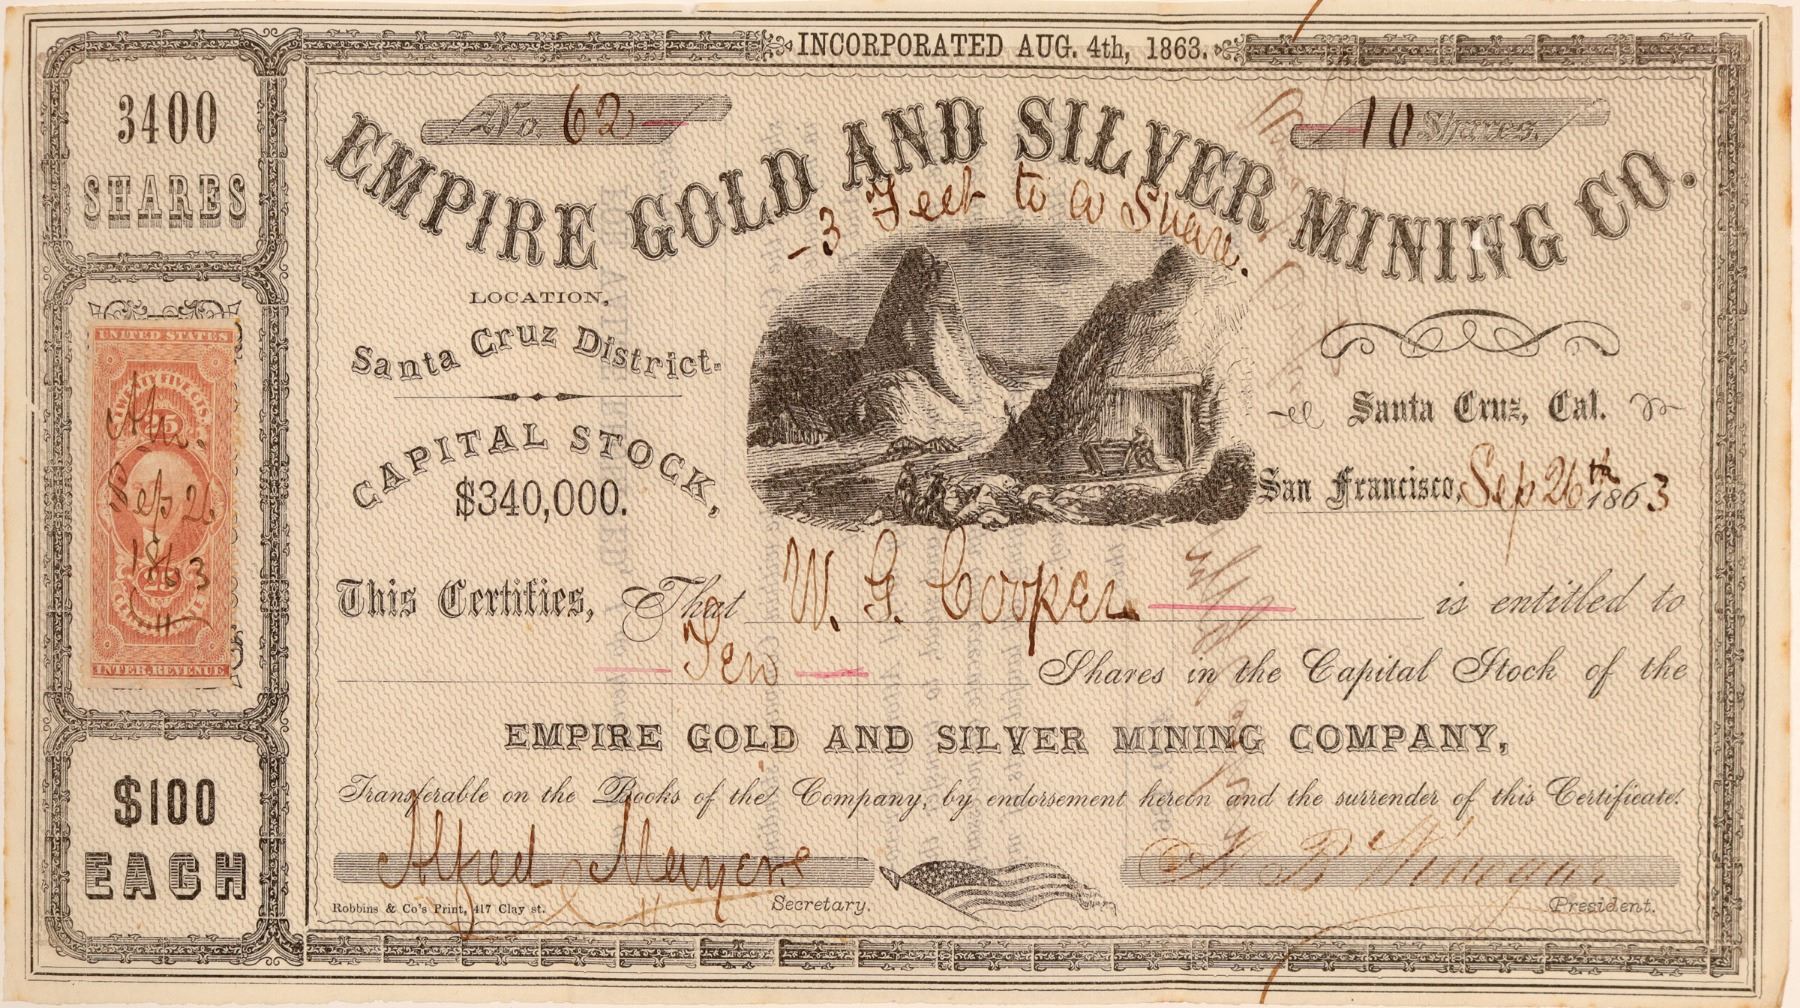 INCORPORATED AUG. 4th, 1863.
3400
SHARES
No. 62
10 Shares.
EMPIRE GOLD AND SILVER MINING CO.
3 Feet to a Share.
LOCATION,
Santa Cruz District.
CAPITAL STOCK,
$340,000.
Santa Cruz, Cal.
San Francisco, Sep 26th 1863
UNITED STATES
25
Sep 26
1863
25
INTER. REVENUE
This Certifies, That W. G. Cooper is entitled to
Ten Shares in the Capital Stock of the
EMPIRE GOLD AND SILVER MINING COMPANY,
Transferable on the Books of the Company, by endorsement hereon and the surrender of this Certificate.
$100
EACH
Alfred
Robbins & Co's Print, 417 Clay st.
Secretary.
President.